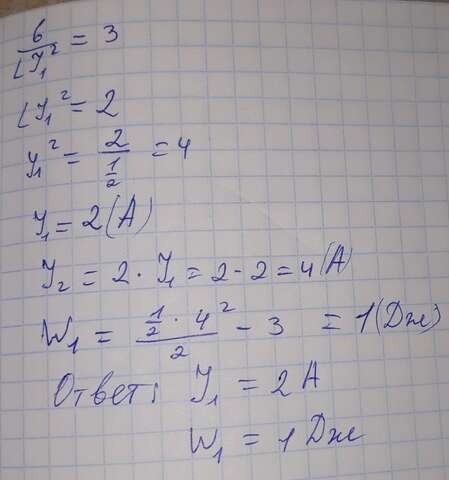 6/LJ₁² = 3
LJ₁² = 2
J₁² = 2/(1/2) = 4
J₁ = 2(A)
J₂ = 2 · J₁ = 2 - 2 = 4(A)
W₁ = (1/2 · 4²)/2 - 3 = 1(Дж)
Ответ: J₁ = 2 A
W₁ = 1 Дж